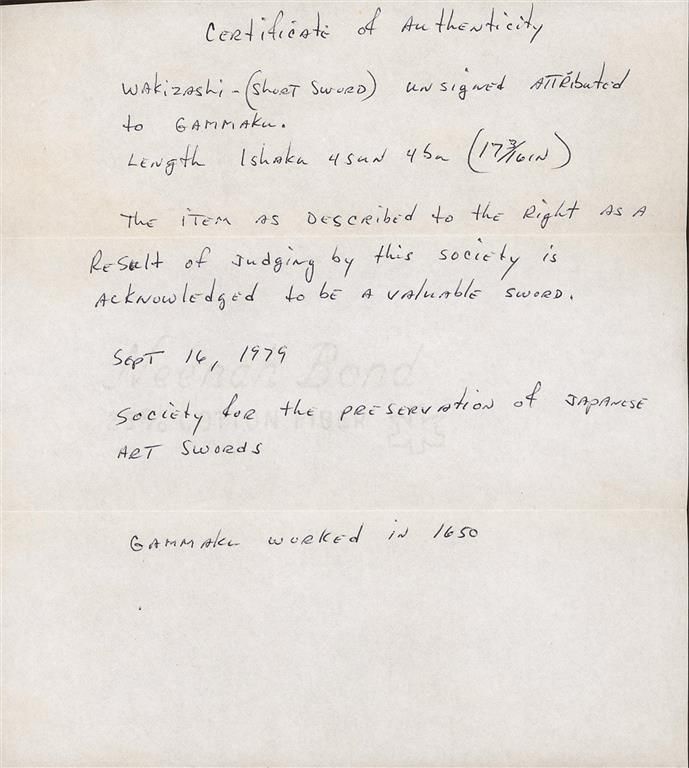 Certificate of Authenticity
Wakizashi - (Short Sword) unsigned attributed
to Gammaku.
Length 1shaku 4sun 4bu (17 3/16 in)
The item as described to the right as a
result of judging by this society is
acknowledged to be a valuable sword.
Sept 16, 1979
Neenah Bond
25% COTTON FIBER
Society for the preservation of Japanese
Art Swords
Gammaku worked in 1650